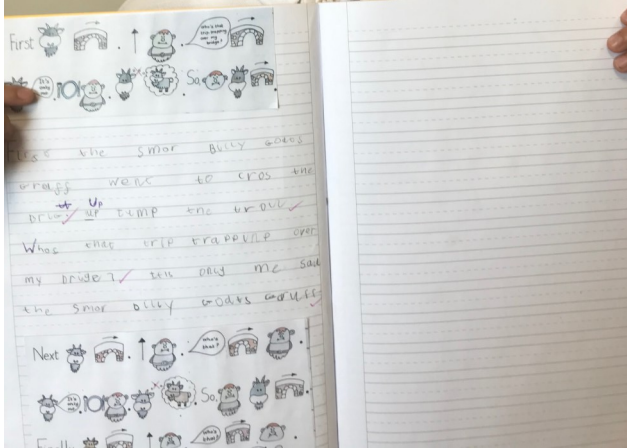 First . Who's that trip trapping over my bridge?
It's only me. . So
First the smor billy gotes
went to cros the
Up
up timp the troll
Whos that trip trapping over
my bridge? its only me sad
the smor billy
Next . . Who's that? .
It's only me. . So, .
Who's that? .